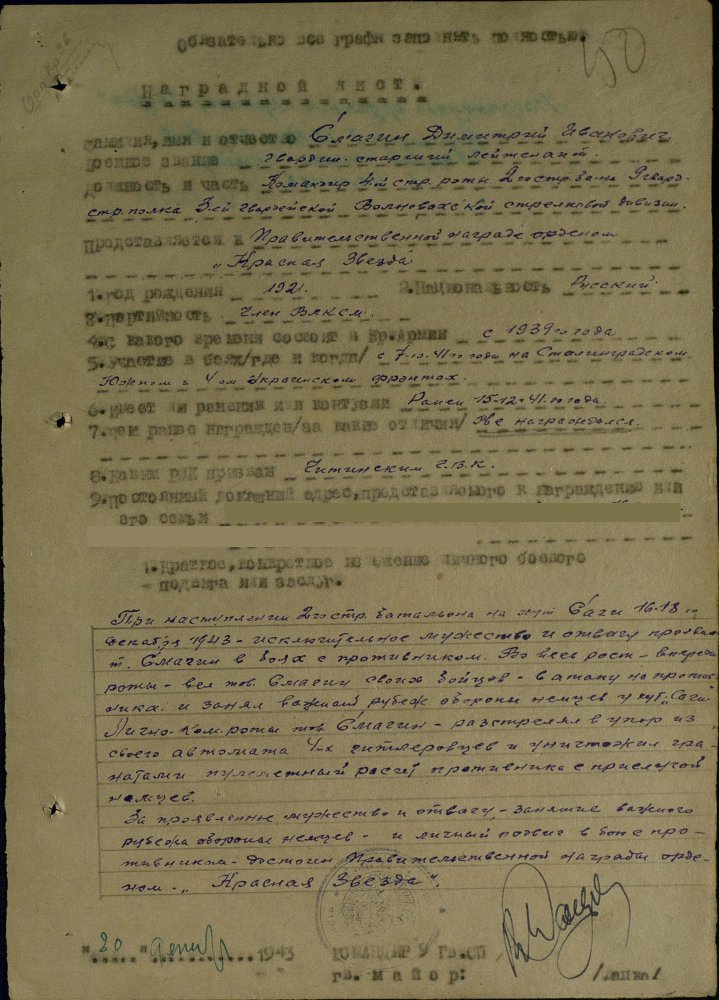 Обязательно все графы заполнить полностью.
50
Наградной лист.
Фамилия, имя и отчество Смагин Димитрий Иванович
Военное звание гвардии-старший лейтенант
Должность и часть Командир 4ой стр. роты 2го стр. бат-на 9 гвард-
стр. полка 3-ей гвардейской Волновахской стрелковой дивизии.
Представляется к Правительственной награде орденом
"Красная Звезда"
1. Год рождения 1921. 2. Национальность Русский.
3. Партийность Член ВЛКСМ.
4. С какого времени состоит в Кр. Армии с 1939 го года
5. Участие в боях /где и когда/ с 7-10-41 го года на Сталинградском,
Южном и 4ом Украинском фронтах.
6. Имеет ли ранения или контузии Ранен 15-12-41 го года.
7. Чем ранее награжден /за какие отличия/ Не награждался.
8. Каким РВК призван Читинским Г.В.К.
9. Постоянный домашний адрес, представляемого к награждению или
его семьи
1. Краткое, конкретное изложение личного боевого
подвига или заслуг.
При наступлении 2го стр. батальона на хут. Саги 16-18 го
декабря 1943 - исключительное мужество и отвагу проявил
т. Смагин в боях с противником. Во весь рост - впереди
роты - вел тов. Смагин своих бойцов - в атаку на против-
ника. и занял важный рубеж обороны немцев у хут. "Саги"
Лично - Комроты тов. Смагин - расстрелял в упор из
своего автомата 4-х гитлеровцев и уничтожил гра-
натами пулеметный расчет противника с прислугой
немцев.
За проявленные мужество и отвагу, - занятие важного
рубежа обороны немцев - и личный подвиг в бою с про-
тивником - достоин Правительственной награды орде-
ном - "Красная Звезда".
"20" декабр 1943 КОМАНДИР 9 ГВ. СП
гв. майор: /Дацко/